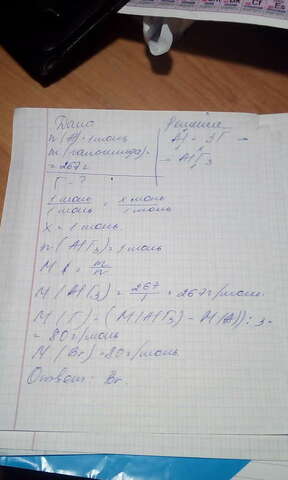 Дано
n(Al)=1моль
m(галогенида)=
=267г
Г-?
Решение
Al + 3Г →
→ AlГ3
1моль/1моль = x моль/1моль
x = 1 моль
n(AlГ3)=1моль
M = m/n
M(AlГ3) = 267/1 = 267г/моль
M(Г) = (M(AlГ3) - M(Al)):3=
= 80г/моль
M(Br)=80г/моль
Ответ: Br.